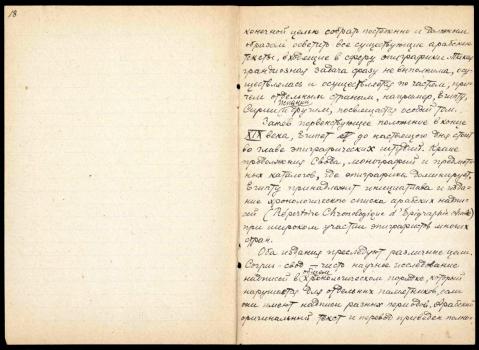 18
конечной целью собрать постепенно и должным
образом осветить все существующие арабские
тексты, входящие в сферу эпиграфики. Такая
грандиозная задача сразу не выполнима, осу-
ществлялась и осуществляется по частям, при
чем отдельным странам, например, Египту,
Сирии и другим, посвящается особый том.
Заняв первенствующее положение в конце
XIX века, Египет до настоящего дня стоит
во главе эпиграфических штудий. Кроме
продолжения Свода, монографий и предметных
каталогов, где эпиграфика доминирует,
Египту принадлежит инициатива и издание
хронологического списка арабских надписей
(Répertoire Chronologique d'Epigraphie Arabe)
при широком участии эпиграфистов многих
стран.
Оба издания преследуют различные цели.
Corpus – свод – чисто научное исследование
надписей в общем хронологическом порядке, который
нарушается для отдельных памятников, если
они имеют надписи разных периодов. Арабский
оригинальный текст и перевод приведен